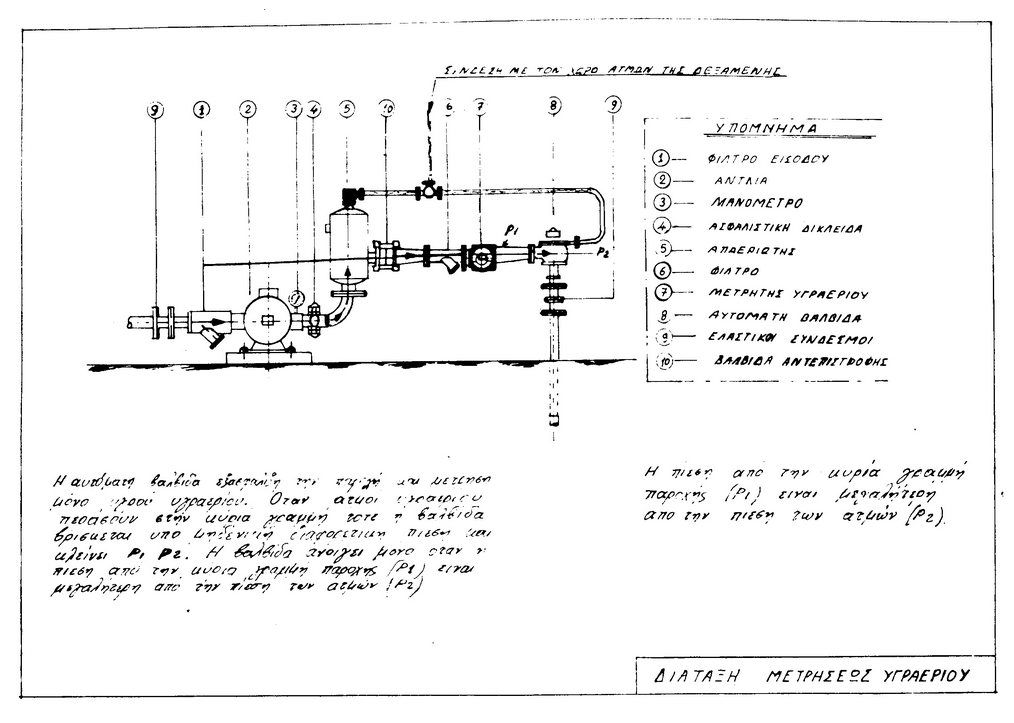 ΣΥΝΔΕΣΗ ΜΕ ΤΟΝ ΧΩΡΟ ΑΤΜΩΝ ΤΗΣ ΔΕΞΑΜΕΝΗΣ
9 1 2 3 4 5 10 6 7 8 9
P1
P2
ΥΠΟΜΝΗΜΑ
1 — ΦΙΛΤΡΟ ΕΙΣΟΔΟΥ
2 — ΑΝΤΛΙΑ
3 — ΜΑΝΟΜΕΤΡΟ
4 — ΑΣΦΑΛΙΣΤΙΚΗ ΔΙΚΛΕΙΔΑ
5 — ΑΠΑΕΡΙΩΤΗΣ
6 — ΦΙΛΤΡΟ
7 — ΜΕΤΡΗΤΗΣ ΥΓΡΑΕΡΙΟΥ
8 ΑΥΤΟΜΑΤΗ ΒΑΛΒΙΔΑ
9 — ΕΛΑΣΤΙΚΟΙ ΣΥΝΔΕΣΜΟΙ
10 — ΒΑΛΒΙΔΑ ΑΝΤΕΠΙΣΤΡΟΦΗΣ
Η αυτόματη βαλβίδα την και μετρηση
μόνο υγρού υγραερίου. Οταν ατμοι υγραεριου
περασουν στην κυρια γραμμή τοτε η βαλβίδα
βρισκεται υπο μηδενικη διαφορετικη πιεση και
κλείνει P1 P2. Η βαλβίδα ανοιγει μονο οταν η
πιεση από την κυρια γραμμη παροχης (P1) ειναι
μεγαλήτερη από την πίεση των ατμών (P2)
Η πιεση από την κυρία γραμμή
παροχης (P1) ειναι μεγαλήτερη
απο την πιεση των ατμών (P2).
ΔΙΑΤΑΞΗ ΜΕΤΡΗΣΕΩΣ ΥΓΡΑΕΡΙΟΥ